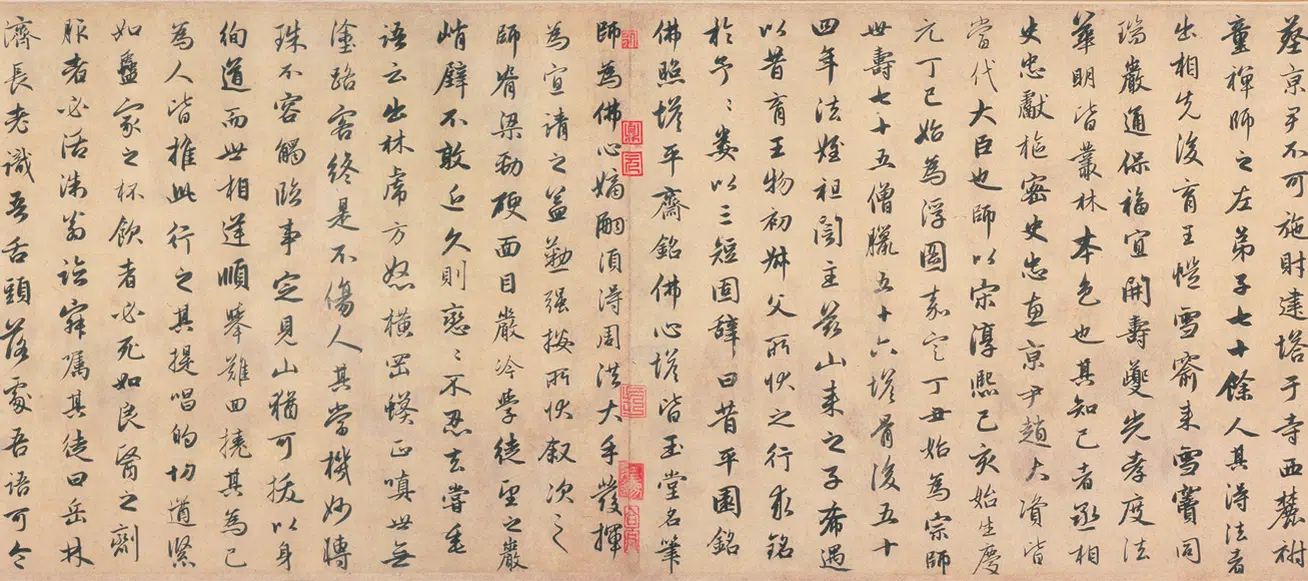 葬京尹不可施財建塔于寺西麓祔
童禪師之左弟子七十餘人其得法者
出相先後育王愷雪窬来雪竇同
瑞巖通保福宜開壽夔先孝度法
華明皆叢林本色也其知己者丞相
史忠獻樞密史忠惠京尹趙大資皆
當代大臣也師以宋淳熙己亥始生慶
元丁巳始為浮圖嘉定丁丑始為宗師
世壽七十五僧臘五十六塔骨後五十
四年法姪祖誾主茲山来之子希遇
以昔育王物初父所狀之行求銘
於予〻婁以三短固辭曰昔平園銘
佛照塔平齋銘佛心塔皆玉堂名筆
師為佛心嫡嗣須得周洪大手發揮
為宜請之益勤强掇所狀叙次之
師脊梁勁硬面目嚴冷學徒望之嚴
峭壁不敢近久則戀〻不忍去嘗垂
語云出林虎方怒橫罡蟒正嗔世無
塗路客終是不傷人其當機妙轉
珠不容觸臨事定見山猶可拔以身
徇道而世相逆順舉難回撓其為己
為人皆推此行之其提唱的切遒緊
如蠱家之杯飲者必死如良醫之劑
服者必活翁囑其徒曰岳林
濟長老識吾舌頭落處吾語可令